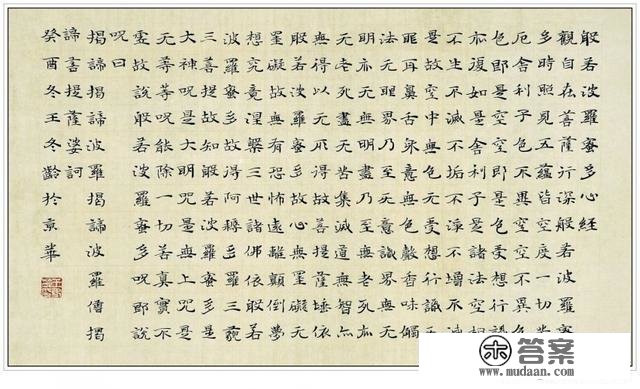 般若波羅蜜多心經
觀自在菩薩行深般若波羅蜜
多時照見五蘊皆空度一切苦
厄舍利子色不異空空不異色
色即是空空即是色受想行識
亦復如是舍利子是諸法空相
不生不滅不垢不淨不增不減
是故空中無色无受想行識无
眼耳鼻舌身意无色聲香味觸
法无眼界乃至无意識界无无
明亦无无明盡乃至無老死亦
无老死盡无苦集滅道無智亦
無得以无所得故菩提薩埵依
般若波羅蜜多故心無罣礙无
罣礙故无有恐怖遠離顛倒夢
想究竟涅槃三世諸佛依般若
波羅蜜多故得阿耨多羅三藐
三菩提故知般若波羅蜜多是
大神呪是大明呪是无上呪是
无等等呪能除一切苦真實不
虛故說般若波羅蜜多呪即說
呪曰
揭諦揭諦波羅揭諦波羅僧揭
諦菩提薩婆訶
癸酉冬王冬齡於京華
木答案
www.mudaan.com